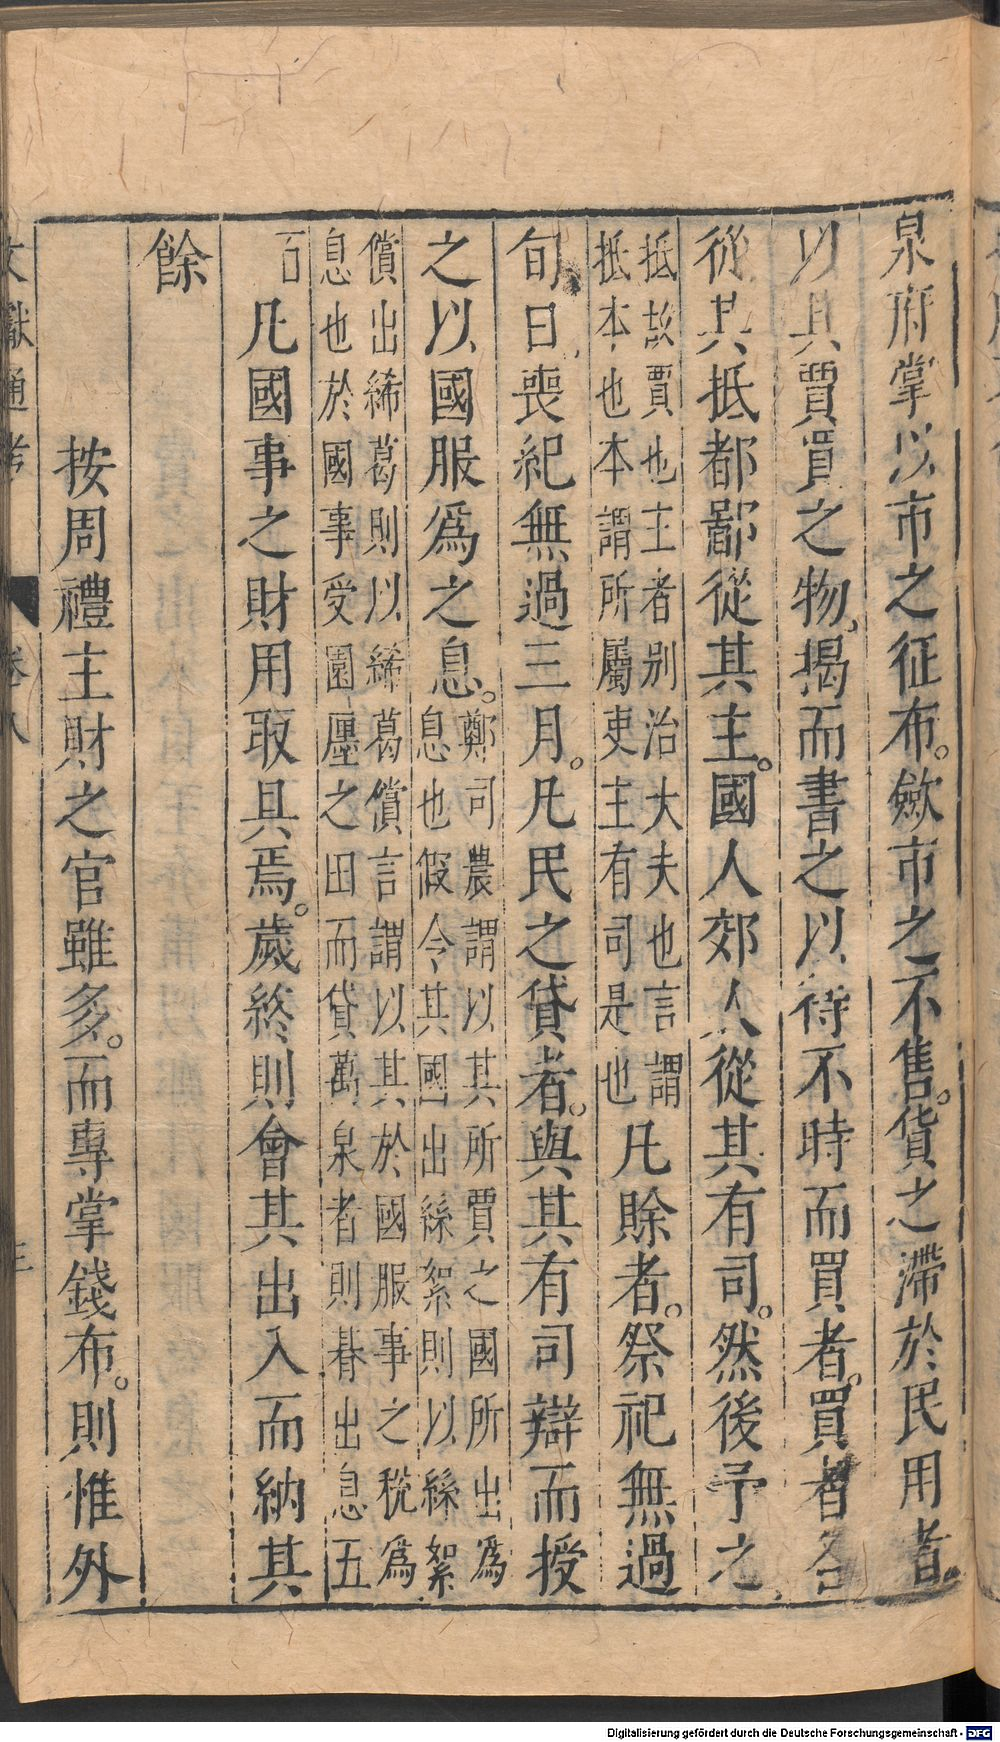 泉府掌以市之征布。斂市之不售。貨之滯於民用者。
以其賈買之物。揭而書之以待不時而買者。買者各
從其抵都鄙從其主。國人郊人從其有司。然後予之
抵故賈也主者别治大夫也言謂
抵本也本謂所屬吏主有司是也
凡賒者。祭祀無過
旬日喪紀無過三月。凡民之貸者。與其有司辯而授
之以國服爲之息。
鄭司農謂以其所賈之國所出爲
息也假令其國出絲絮則以絲絮
償出絺葛則以絺葛償言謂以其於國服事之稅爲
息也於國事受園廛之田而貸萬泉者則朞出息五
百
凡國事之財用取具焉。歲終則會其出入而納其
餘
按周禮主財之官雖多。而專掌錢布。則惟外
文獻通考
卷八
三
Digitalisierung gefördert durch die Deutsche Forschungsgemeinschaft - DFG